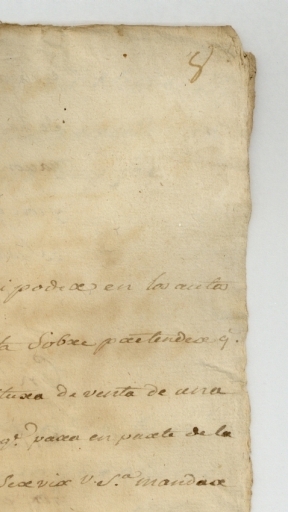 8
i poder en los autos
ta Sobre pretender q.
tura de venta de una
q.e vaxa en parte de la
Servir V.S.a mandar